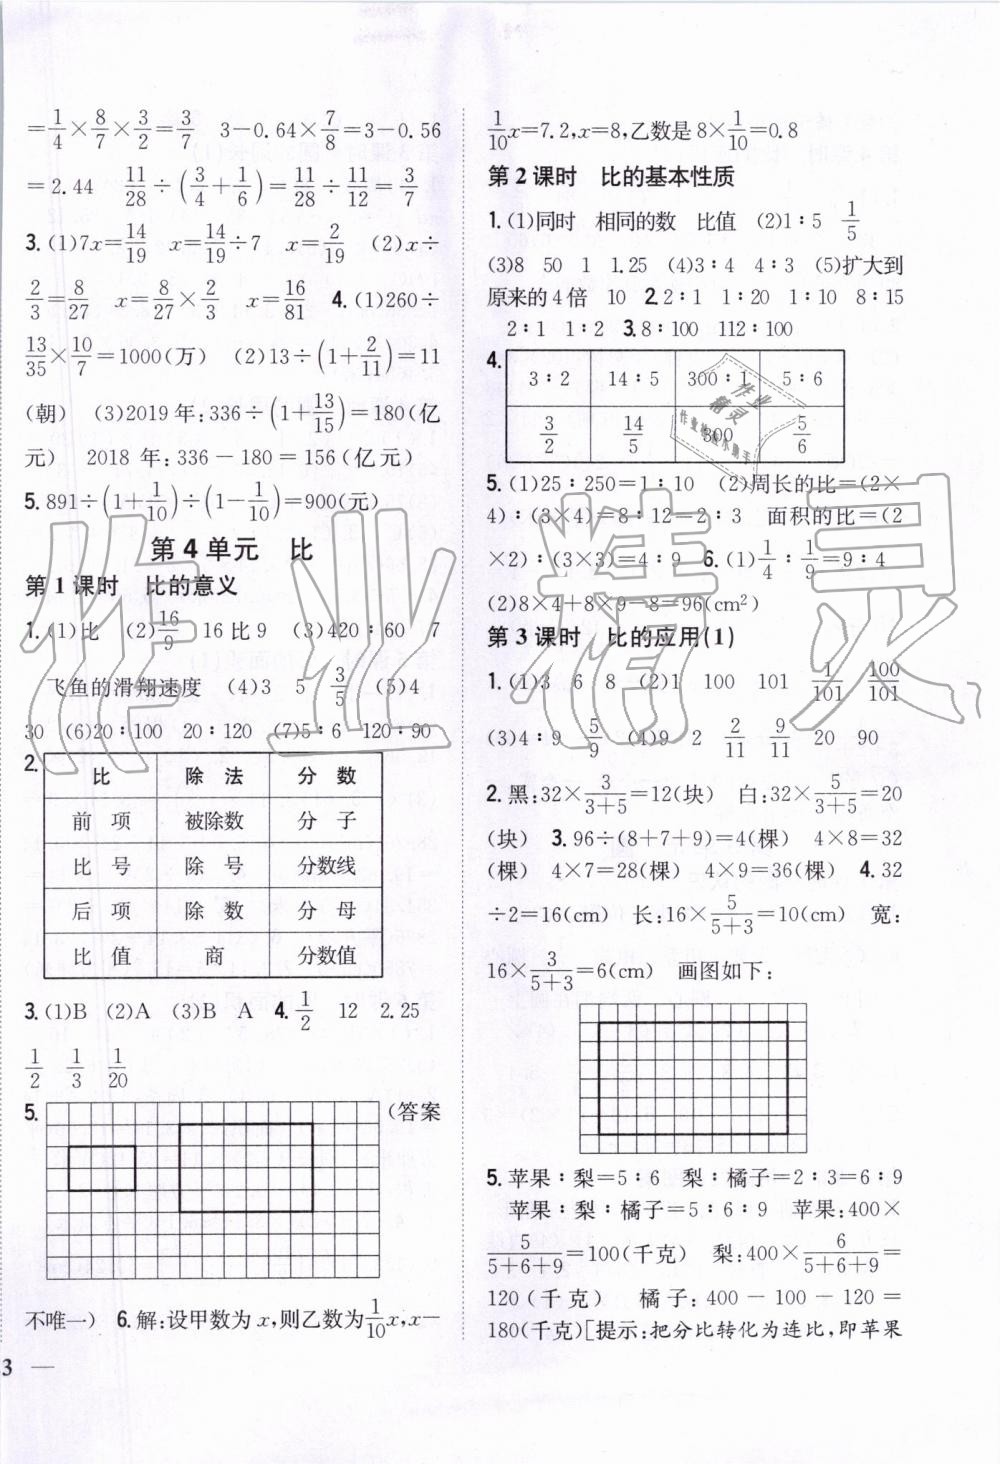 =1/4×8/7×3/2=3/7  3-0.64×7/8=3-0.56
=2.44  11/28÷(3/4+1/6)=11/28÷11/12=3/7
3.(1)7x=14/19  x=14/19÷7  x=2/19  (2)x÷
2/3=8/27  x=8/27×2/3  x=16/81  4.(1)260÷
13/35×10/7=1000(万)  (2)13÷(1+2/11)=11
(朝)  (3)2019年:336÷(1+13/15)=180(亿
元)  2018年:336-180=156(亿元)
5.891÷(1+1/10)÷(1-1/10)=900(元)
第4单元  比
第1课时  比的意义
1.(1)比  (2)16/9  16比9  (3)420∶60  7
飞鱼的滑翔速度  (4)3  5  3/5  (5)4
30  (6)20∶100  20∶120  (7)5∶6  120∶90
2.
比  除法  分数
前项  被除数  分子
比号  除号  分数线
后项  除数  分母
比值  商  分数值
3.(1)B  (2)A  (3)B  A  4.1/2  12  2.25
1/2  1/3  1/20
5.  (答案
不唯一)  6.解:设甲数为x,则乙数为1/10x,x-
3 —
1/10x=7.2,x=8,乙数是8×1/10=0.8
第2课时  比的基本性质
1.(1)同时  相同的数  比值  (2)1∶5  1/5
(3)8  50  1  1.25  (4)3∶4  4∶3  (5)扩大到
原来的4倍  10  2.2∶1  1∶20  1∶10  8∶15
2∶1  1∶2  3.8∶100  112∶100
4.
3∶2  14∶5  300∶1  5∶6
3/2  14/5  300  5/6
5.(1)25∶250=1∶10  (2)周长的比=(2×
4)∶(3×4)=8∶12=2∶3  面积的比=(2
×2)∶(3×3)=4∶9  6.(1)1/4∶1/9=9∶4
(2)8×4+8×9-8=96(cm²)
第3课时  比的应用(1)
1.(1)3  6  8  (2)1  100  101  1/101  100/101
(3)4∶9  5/9  (4)9  2  2/11  9/11  20  90
2.黑:32×3/(3+5)=12(块)  白:32×5/(3+5)=20
(块)  3.96÷(8+7+9)=4(棵)  4×8=32
(棵)  4×7=28(棵)  4×9=36(棵)  4.32
÷2=16(cm)  长:16×5/(5+3)=10(cm)  宽:
16×3/(5+3)=6(cm)  画图如下:
5.苹果∶梨=5∶6  梨∶橘子=2∶3=6∶9
苹果∶梨∶橘子=5∶6∶9  苹果:400×
5/(5+6+9)=100(千克)  梨:400×6/(5+6+9)=
120(千克)  橘子:400-100-120=
180(千克)[提示:把分比转化为连比,即苹果
作业精灵
作业
精灵